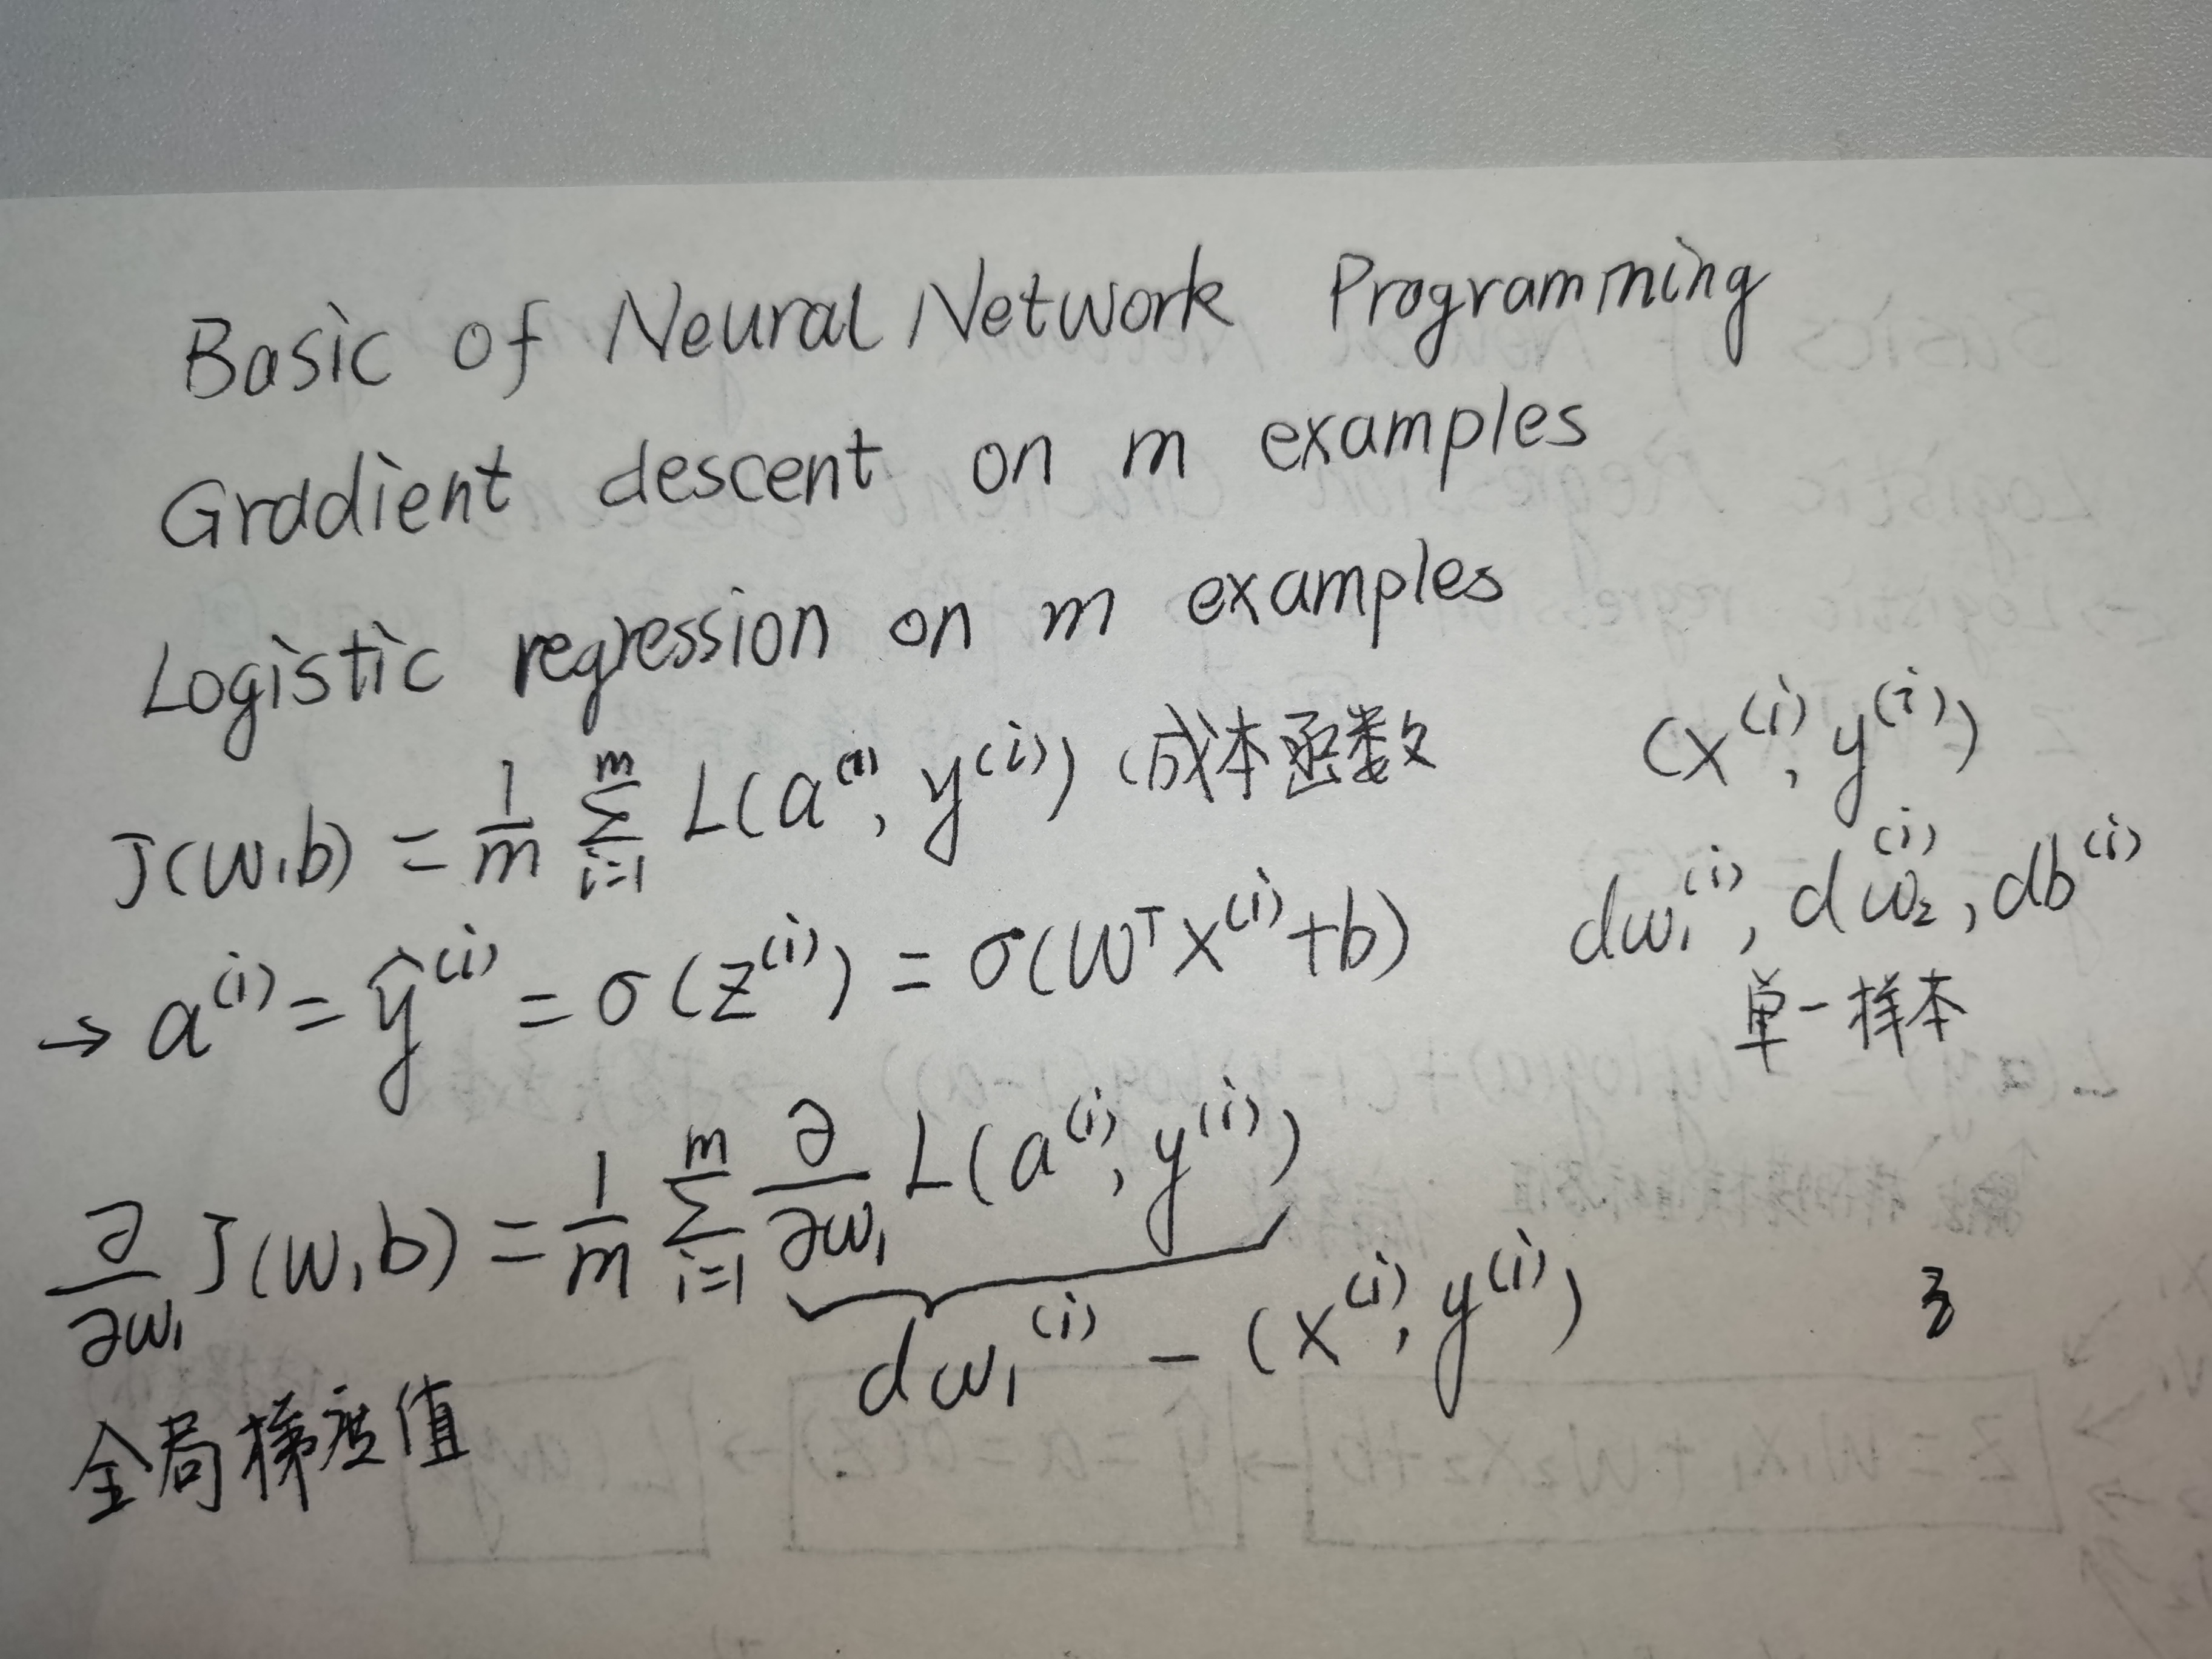 Basic of Neural Network Programming
Gradient descent on m examples
Logistic regression on m examples
J(w,b) = 1/m ∑_{i=1}^{m} L(a^{(i)}, y^{(i)}) (成本函数
(x^{(i)}, y^{(i)})
→ a^{(i)} = ŷ^{(i)} = σ(z^{(i)}) = σ(w^T x^{(i)} + b)
dw₁^{(i)}, dw₂^{(i)}, db^{(i)}
单一样本
∂/∂w₁ J(w,b) = 1/m ∑_{i=1}^{m} ∂/∂w₁ L(a^{(i)}, y^{(i)})
dw₁^{(i)} — (x^{(i)}, y^{(i)})
全局梯度值